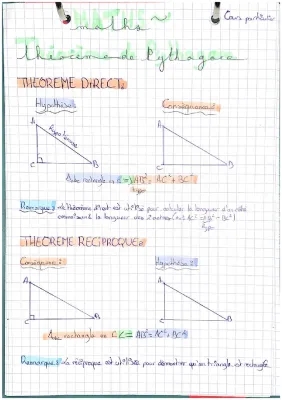 MATHS
maths
Cours particulier
Théorème de Pythagore
THEOREME DIRECT:
Hypothèse:
Conséquence:
A
hypoténuse
C
B
A
C
B
rectangle en C => AB² = AC² + BC²
hyp
Remarque: le théorème direct est utilisé pour calculer la longueur d'un côté
connaissant la longueur des 2 autres
hyp
THEOREME RECIPROQUE:
Conséquence:
Hypothèse:
A
C
B
A
C
B
rectangle en C <= AB² = AC² + BC²
Remarque: la réciproque est utilisée pour démontrer qu'un triangle est rectangle